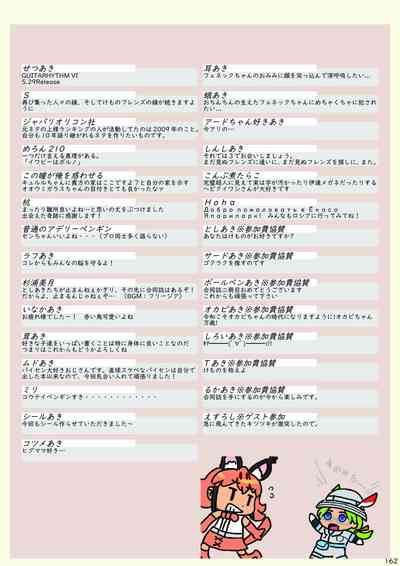 せつあき
GUITARHYTHM VI
5.29Release
S
再び集った人々の縁、そしてけものフレンズの縁が続きますように
ジャパリオリコン社
元ネタの上様ランキングの人が活動してたのは2009年のこと。
自分も10年語り継がれるネタを作りたいものです。
めろん210
一つだけ言える真理がある。
「イワビーはボルノ」
この瞳が俺を惑わせる
キュルルちゃんに貴方の家はここですよ?と自分の家を示す
オオウミガラスさんの目付きとても良かったなって
杭
まったり難所良いよね…と思いの丈をぶつけました
出会えた奇跡に感謝します!
普通のアデリーペンギン
センちゃんいいよね・・・(プロ同士多く語らない)
ラフあき
コレからもみんなの脳を守るよ!
杉浦美月
としあきたちが止まんねぇかぎり、その先に合同誌はあるぞ!
だからよ、止まるんじゃねぇぞ… (BGM:フリージア)
いなかあき
お疲れ様でしたー! 赤い鳥可愛いよね
茸あき
好きな子達をいっぱい書くことは特に身体に良いことなのだ
つまりはこれからもどうかよろしくね
ムドあき
パイセン大好きおじさんです。直球スケベなパイセンは自分で出した本出来なので、今回気合い入れて頑張りました!
ミリ
コウテイペンギンすき・・・・・・・・・・・・
シールあき
今回もシール作らせていただきました〜
コツメあき
ヒグママ好き…
耳あき
フェネックちゃんのおみみに顔を突っ込んで深呼吸したい…
蛾あき
おちんちんの生えたフェネックちゃんにめちゃくちゃに犯されたい…
アードちゃん好きあき
今アリの…
しんしあき
それでは3でお会いしましょう。
まだ見ぬフレンズに逢いに、まだ見ぬフレンズを探しに、また。
こんぶ煮たらこ
完璧超人に見えて実は字が汚かったり伊達メガネだったりするヘビクイワシさんが大好きです
Hoha
Добро пожаловать в Ёносо
Япарипарк! みんなもロシアに行ってみてね!
としあき※参加貴協賛
あなたはけものがお好きですか?
サードあき※参加貴協賛
ゴクラクを復すのです
ボールペンあき※参加貴協賛
合同誌二冊目おめでとうございます
これからも頑張って下さい
オカピあき※参加貴協賛
令和こそオカピちゃんの時代になりますように!オカピちゃん万歳!
しろいあき※参加貴協賛
Tあき※参加貴協賛
けものを称えよ
るかあき※参加貴協賛
合同誌を手にするのが今から楽しみです。
えすろし※ゲスト参加
急に飛んできたキツツキが激突したので。
162